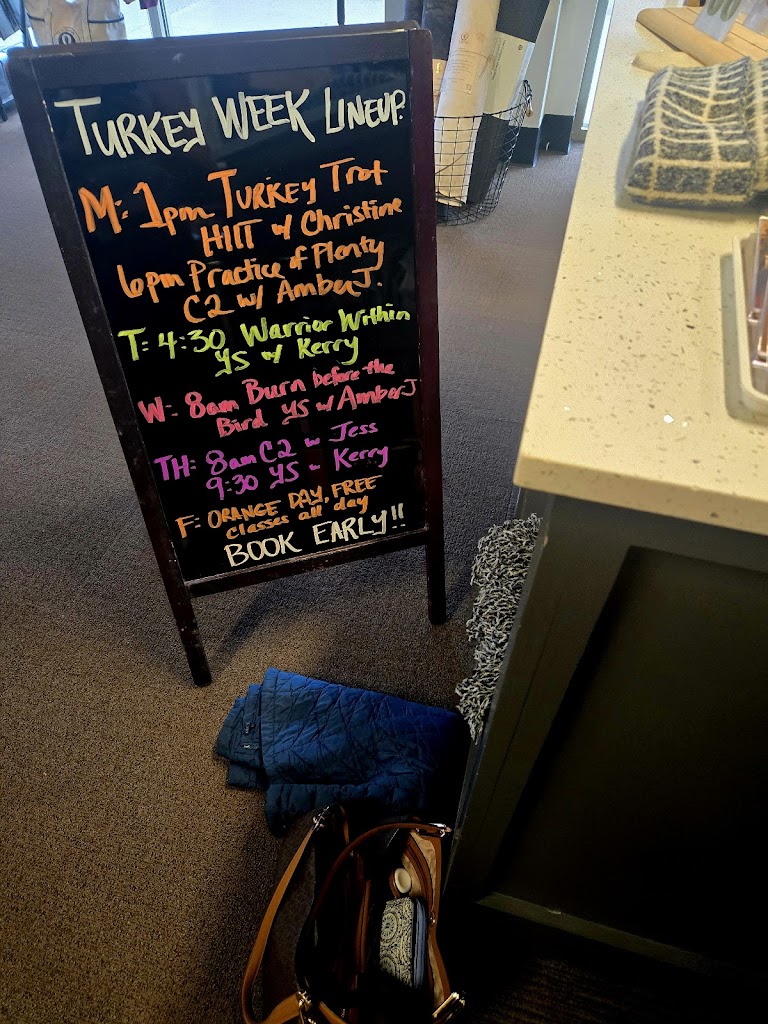 TURKEY WEEK LINEUP.
M: 1pm TURKEY TroT
HIIT w/ Christine
6pm Practice of Plenty
C2 w/ Amber J.
T: 4:30 Warrior Within
YS w/ Kerry
W: 8am Burn before the
Bird YS w/ Amber J
TH: 8am C2 w Jess
9:30 YS w Kerry
F: ORANGE DAY, FREE
classes all day
BOOK EARLY!!